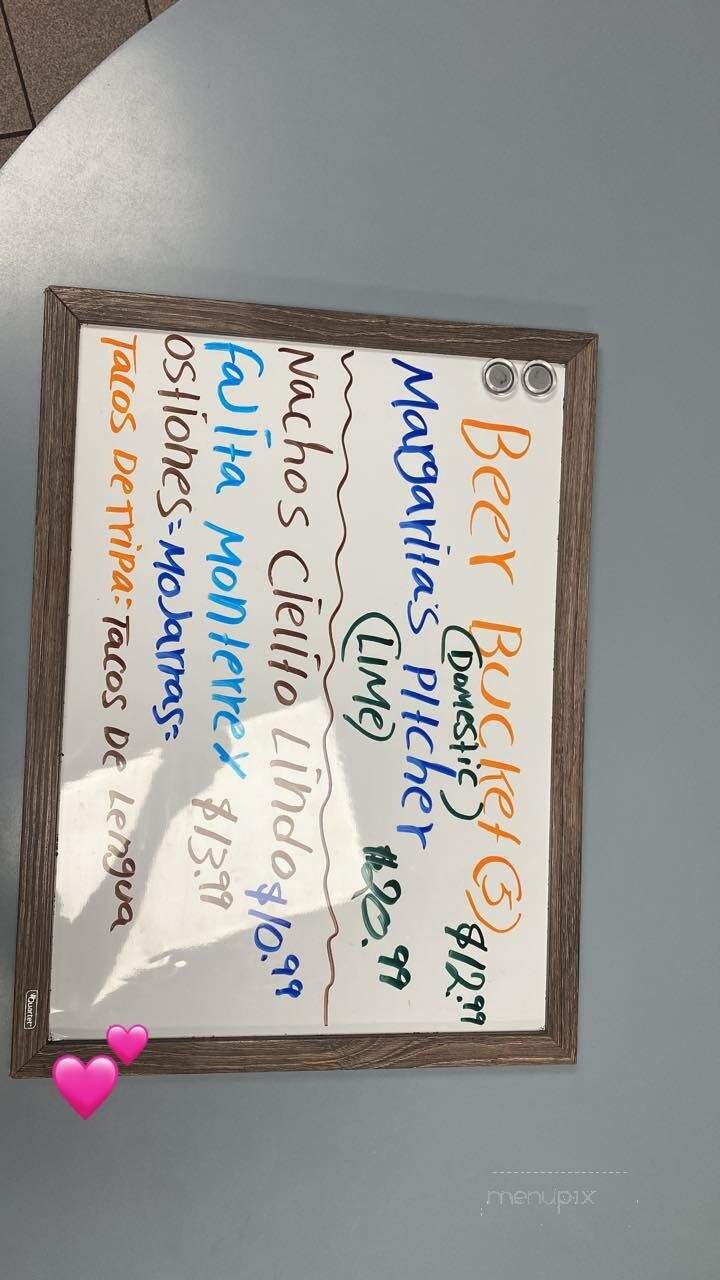 Beer Bucket (5)
(Domestic) $12.99
Margarita's Pitcher
(Lime) $20.99
Nachos Cielito Lindo $10.99
Fajita Monterrey $13.99
Ostiones = Mojarras =
Tacos De Tripa: Tacos De Lengua
Quartet
menupix